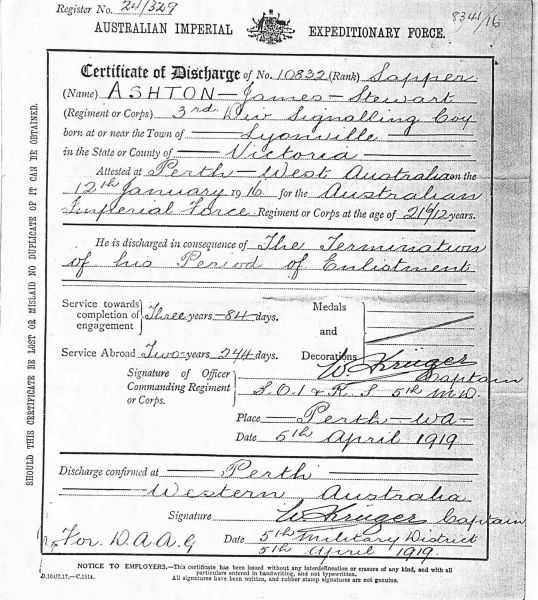 Register No. 24/329
8341/16
AUSTRALIAN IMPERIAL EXPEDITIONARY FORCE.
Certificate of Discharge of No. 10832 (Rank) Sapper
(Name) ASHTON — James — Stewart
(Regiment or Corps) 3rd Div Signalling Coy
born at or near the Town of Lyonville
in the State or County of Victoria
Attested at Perth — West Australia on the
12th January 1916 for the Australian
Imperial Force Regiment or Corps at the age of 21 9/12 years.
He is discharged in consequence of The Termination
of his Period of Enlistment
Service towards completion of engagement Three years 84 days.
Medals
and
Decorations
Service Abroad Two years 244 days.
W. Krüger
Captain
Signature of Officer Commanding Regiment or Corps.
S.O.I & R.S 5th M.D.
Place Perth — WA.
Date 5th April 1919
Discharge confirmed at Perth
Western Australia
Signature W. Krüger Captain
For D.A.A.G Date 5th Military District
5th April 1919.
NOTICE TO EMPLOYERS.—This certificate has been issued without any interdelineation or erasure of any kind, and with all
particulars entered in handwriting, and not typewritten.
All signatures have been written, and rubber stamp signatures are not genuine.
SHOULD THIS CERTIFICATE BE LOST OR MISLAID NO DUPLICATE OF IT CAN BE OBTAINED.